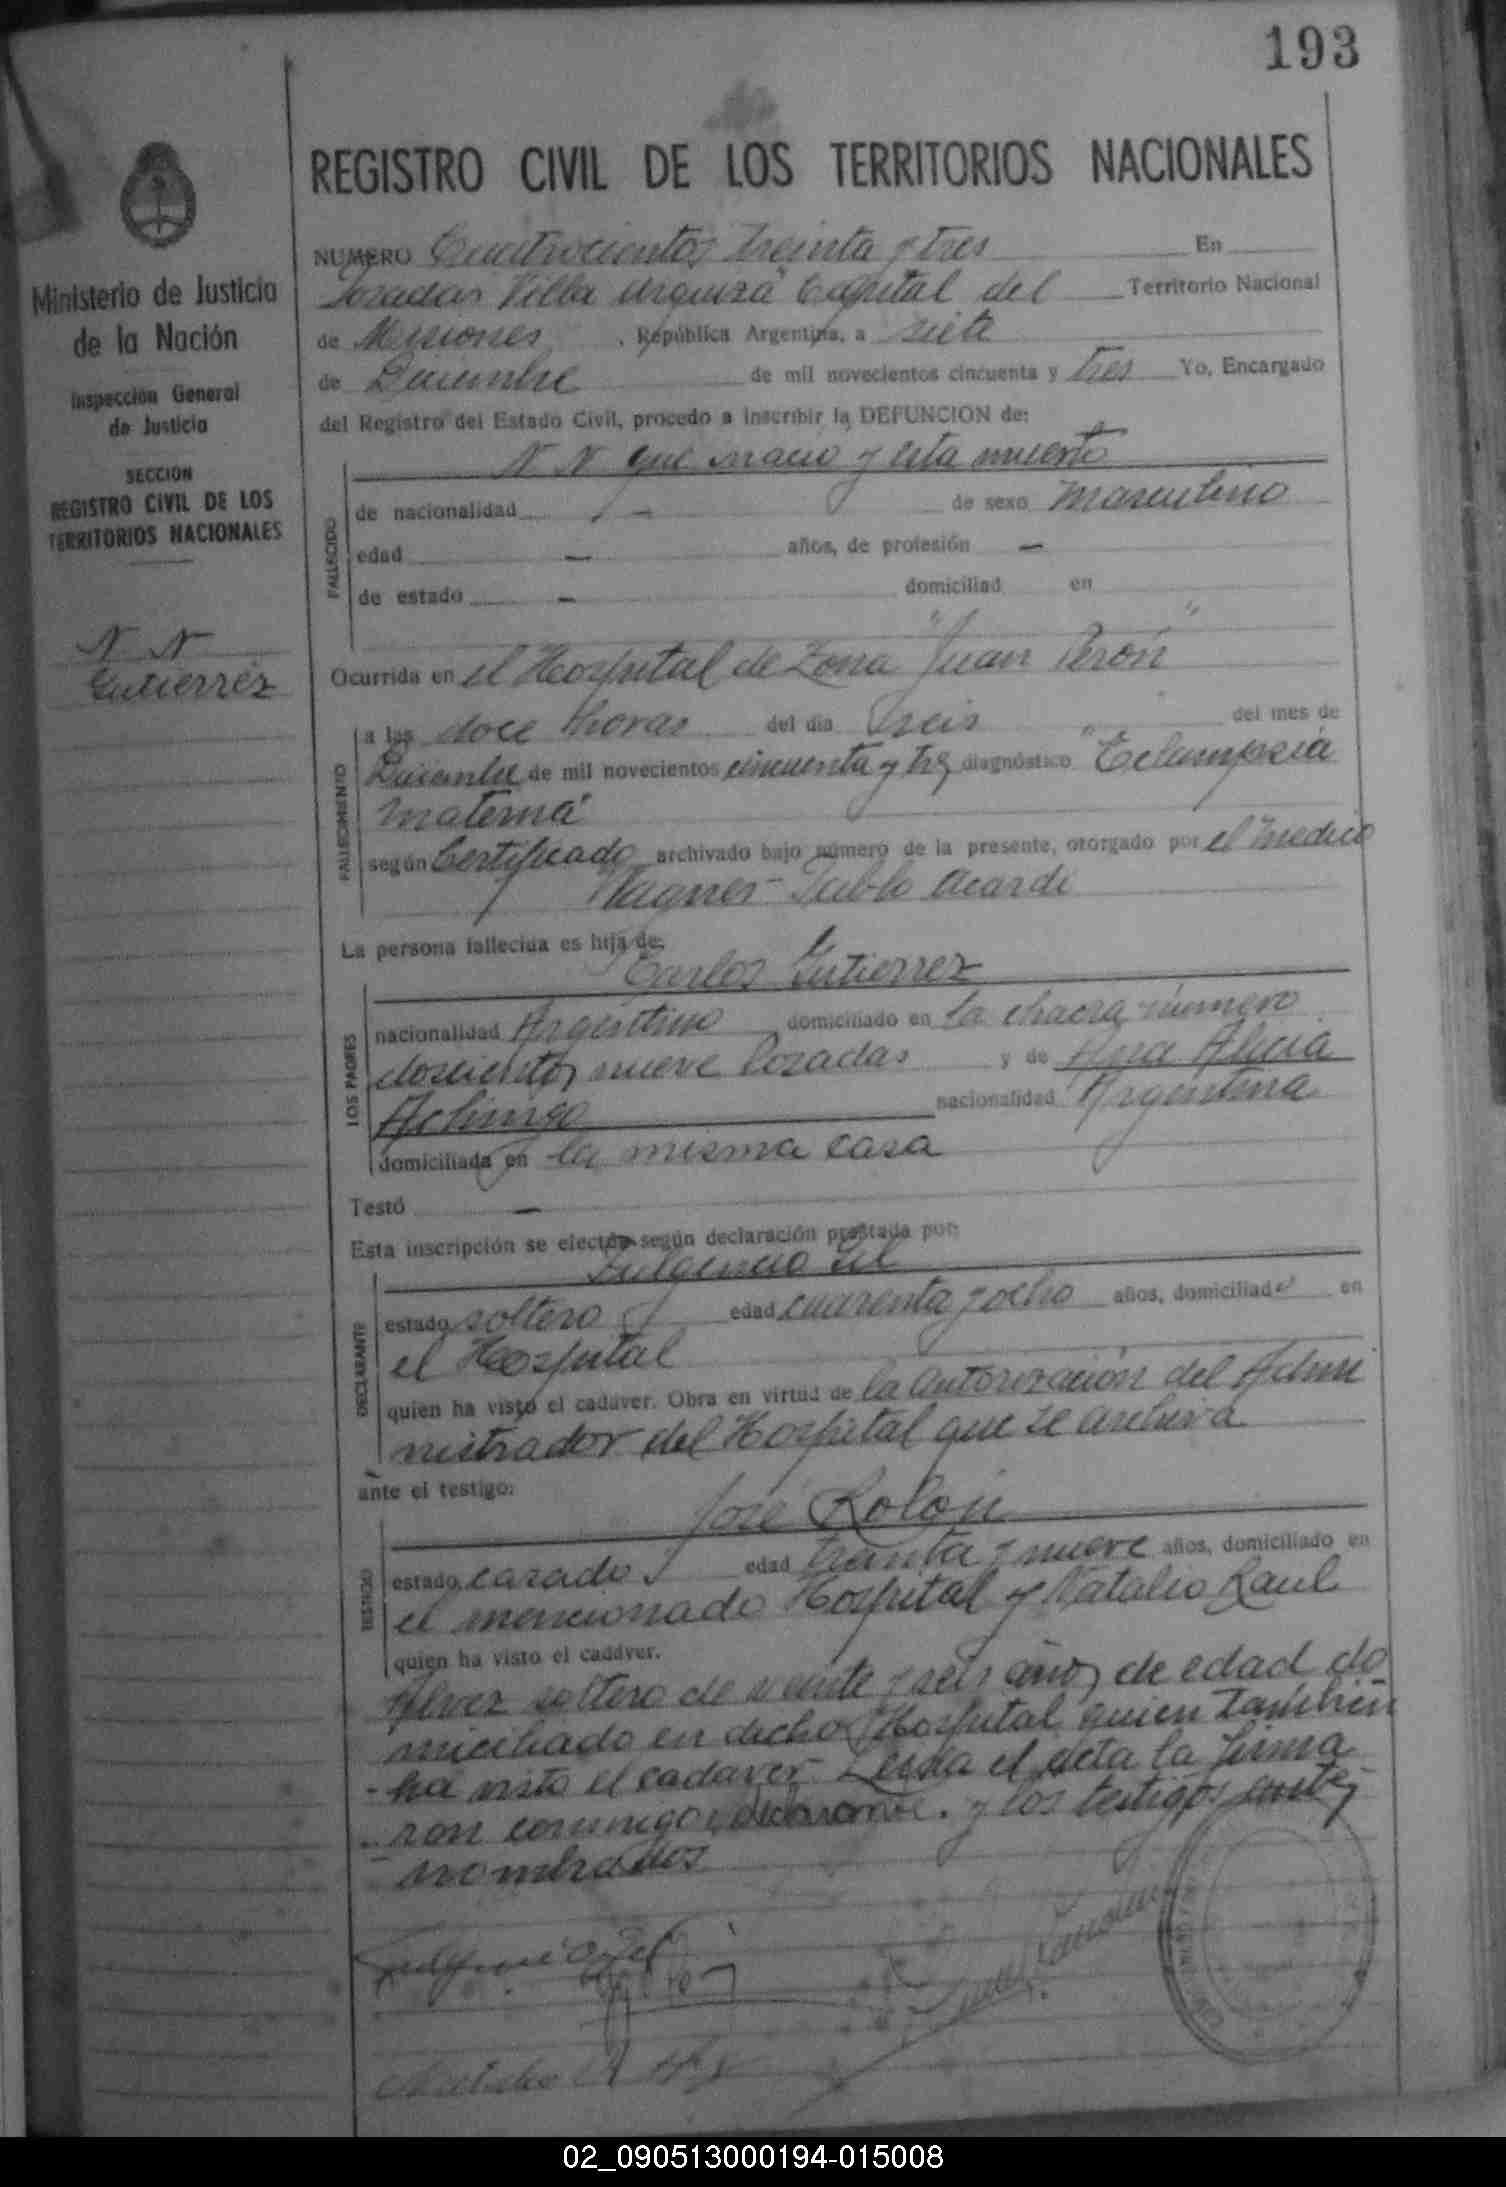 193
REGISTRO CIVIL DE LOS TERRITORIOS NACIONALES
Ministerio de Justicia
de la Nación
Inspección General
de Justicia
SECCION
REGISTRO CIVIL DE LOS
TERRITORIOS NACIONALES
N N
Gutierrez
NUMERO Cuatrocientos treinta y tres En
Posadas Villa Urquiza Capital del Territorio Nacional
de Misiones , República Argentina, a siete
de Diciembre de mil novecientos cincuenta y tres Yo, Encargado
del Registro del Estado Civil, procedo a inscribir la DEFUNCION de:
N N que nacio y esta muerto
FALLECIDO
de nacionalidad - de sexo Masculino
edad - años, de profesión -
de estado - domiciliad en
Ocurrida en el Hospital de Zona "Juan Perón"
FALLECIMIENTO
a las doce horas del día seis del mes de
Diciembre de mil novecientos cincuenta y tres diagnóstico "Eclampsia
materna"
según Certificado archivado bajo número de la presente, otorgado por el medico
Wagner Pablo
La persona fallecida es hija de:
Carlos Gutierrez
LOS PADRES
nacionalidad Argentino domiciliado en la chacra número
doscientos nueve Posadas y de Ana Alicia
nacionalidad Argentina
domiciliada en la misma casa
Testó -
Esta inscripción se efectúa según declaración prestada por:
Fulgencio Gil
DECLARANTE
estado soltero edad cuarenta y ocho años, domiciliado en
el Hospital
quien ha visto el cadáver. Obra en virtud de la autorización del Admi
nistrador del Hospital que se archiva
ante el testigo:
José Rolón
TESTIGO
estado casado edad treinta y nueve años, domiciliado en
el mencionado Hospital y Natalio Raul
quien ha visto el cadáver.
Alvez soltero de veinte y seis años de edad do
miciliado en dicho Hospital quien también
ha visto el cadaver. Leida el acta la firma
ron conmigo, declarante y los testigos ante
nombrados
02_090513000194-015008